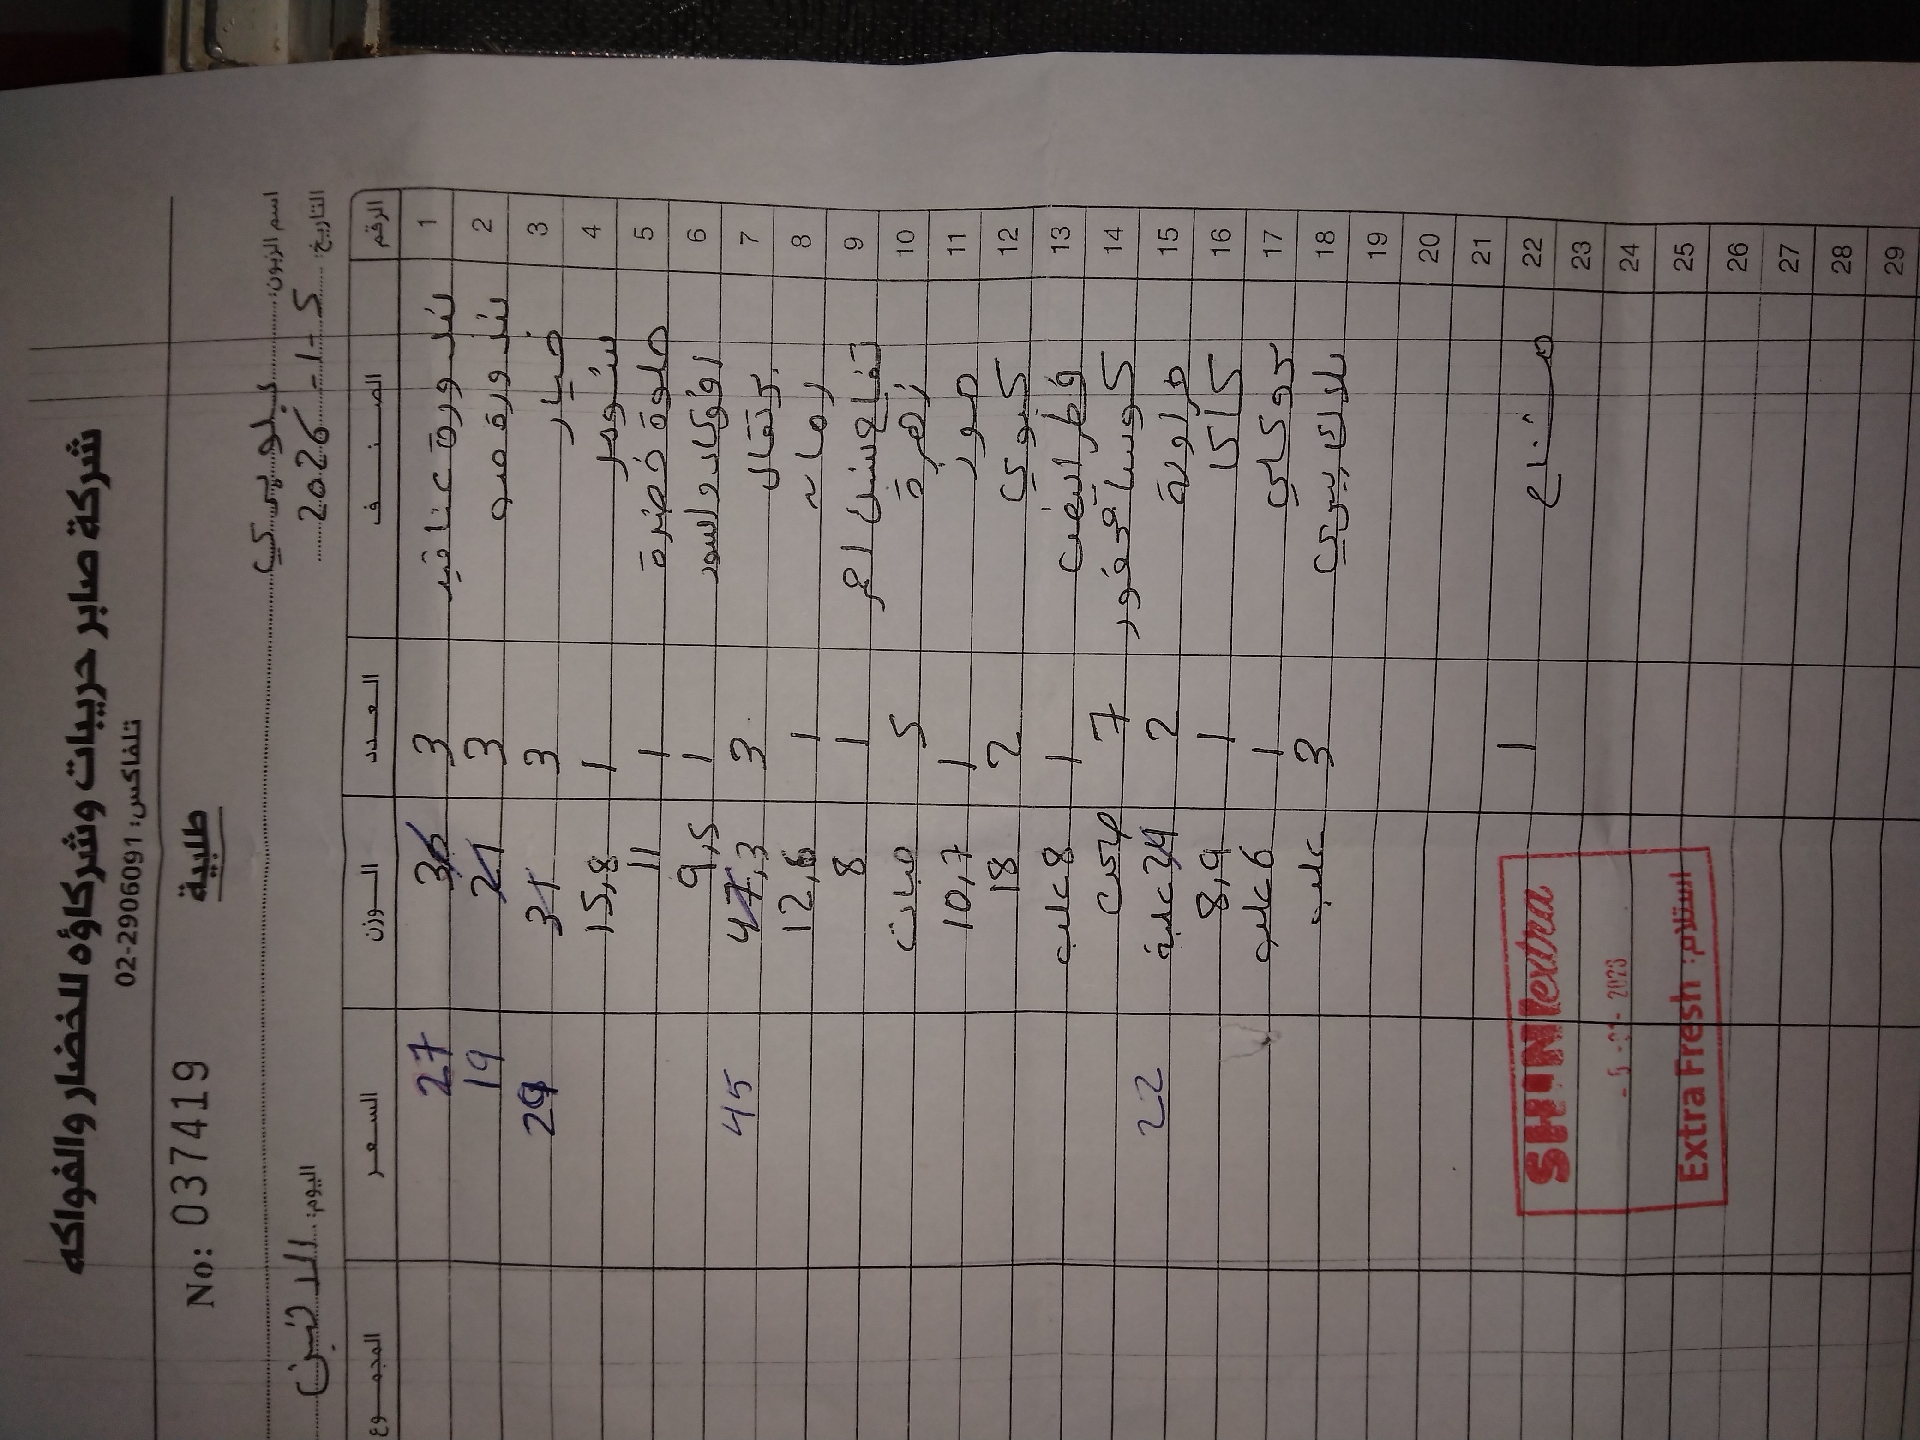 شركة صابر حريبات وشركاؤه للخضار والفواكه
تلفاكس: 02-2906091
طلبية
No: 037419
اسم الزبون:
التاريخ: 5-1-2026 اليوم: الاثنين
الرقم الصنف العدد الوزن السعر المجموع
1 بندورة عناقيد 3 36 27
2 بندورة 3 21 19
3 خيار 3 31 29
4 شومر 1 15,8
5 حلوة خضرة 1 11
6 افوكادو اسود 1 9,5
7 برتقال 3 47,3 45
8 رمان 1 12,6
9 تفاح 1 8
10 زهرة 5 حبات
11 موز 1 10,7
12 كيوي 2 18
13 فطر ابيض 1 8 علب
14 كوسا 7
15 فراولة 2 24 علبة 22
16 كاكا 1 8,9
17 1 6 علب
18 بلاك بيري 3 علب
19
20
21
22 نعنع 1
23
24
25
26
27
28
29
SHINI extra
- 5 -01- 2026
Extra Fresh استلام: